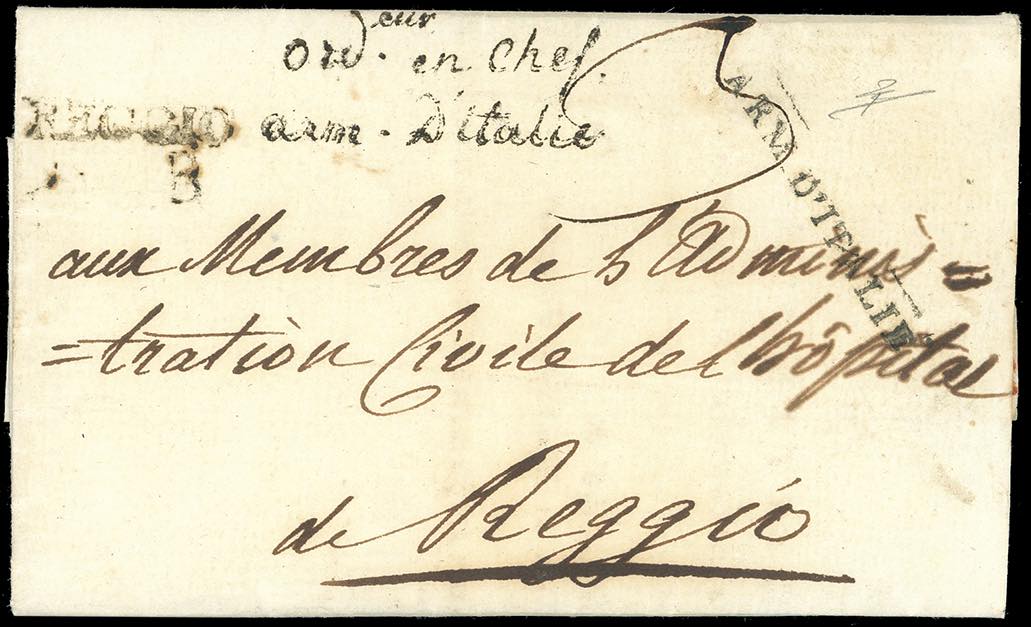 Ord.eur en Chef.
arm. D'italie
REGGIO
B
ARM. D'ITALIE
aux Membres de l'Adminis=
=tration Civile de l'hôpital
de Reggio